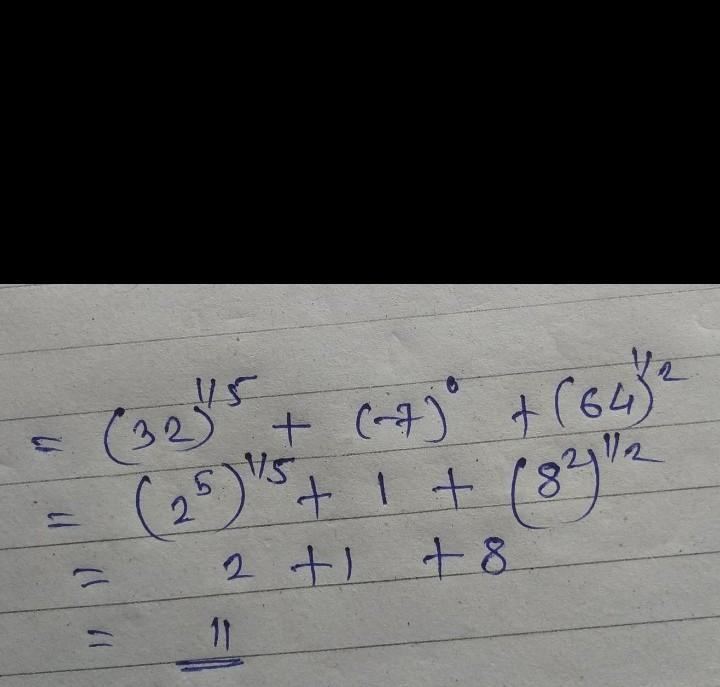 = (32)^1/5 + (-7)^0 + (64)^1/2
= (2^5)^1/5 + 1 + (8^2)^1/2
= 2 + 1 + 8
= 11